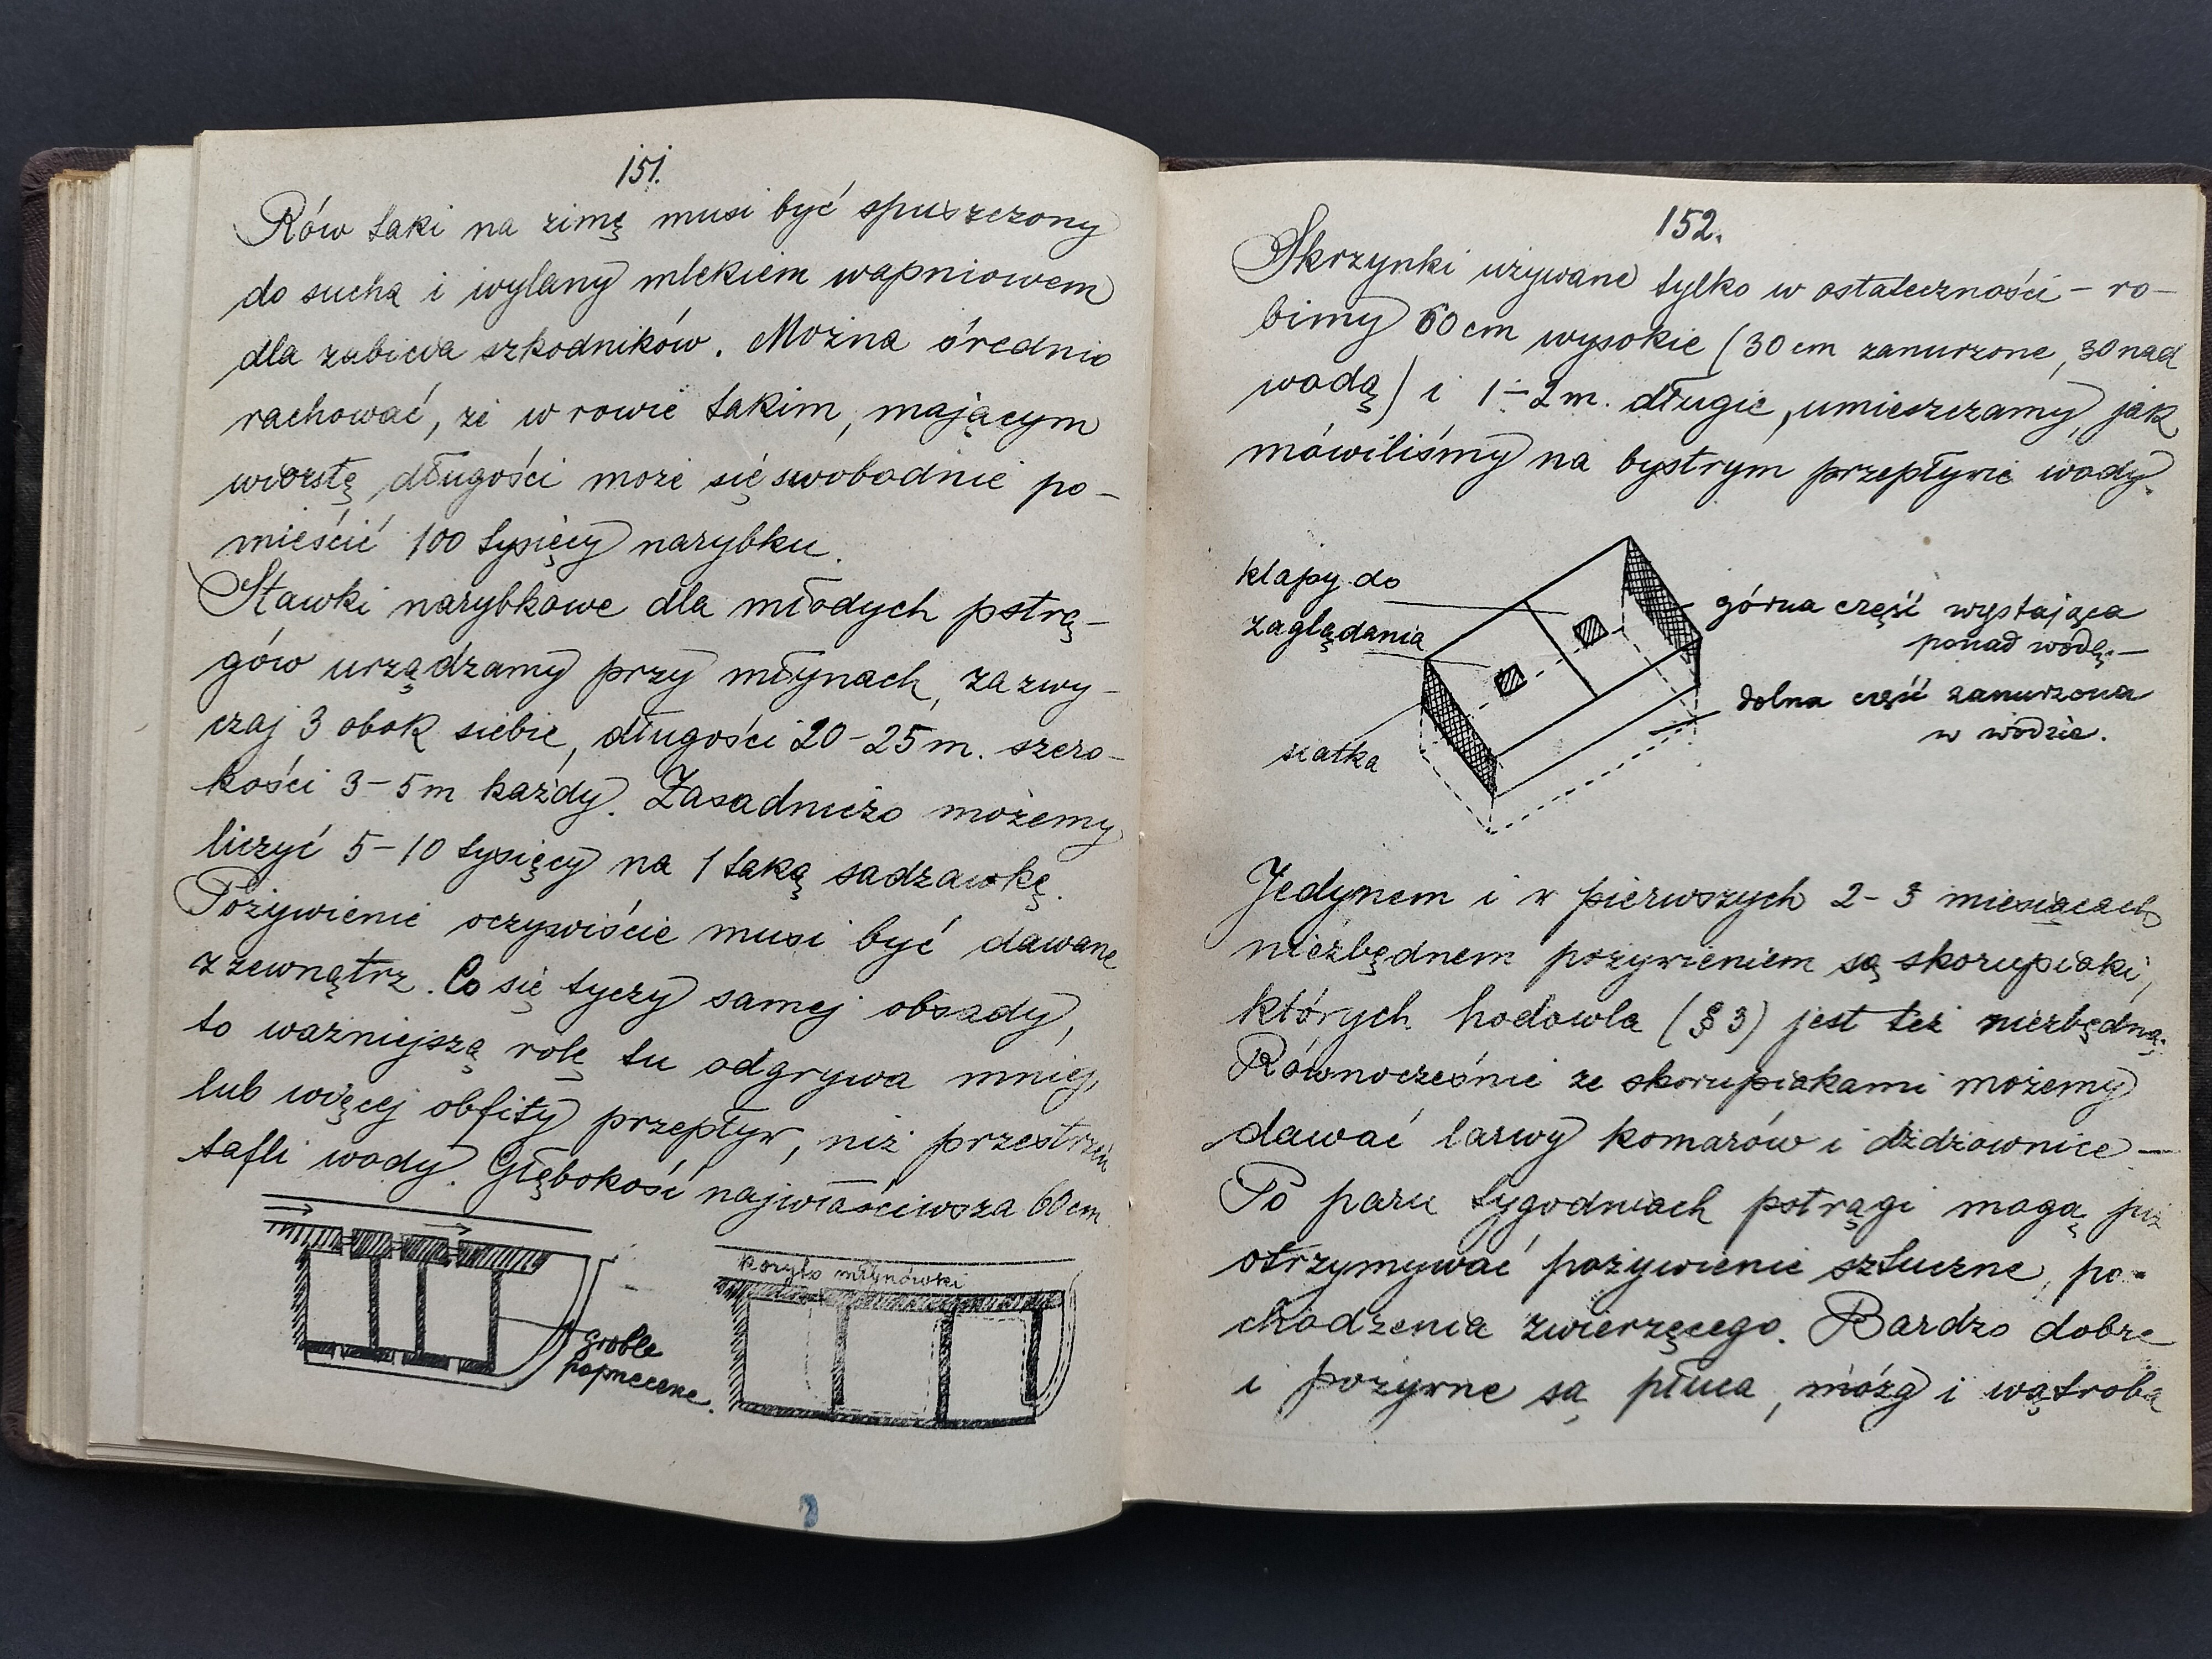 151.
Rów taki na zimę musi być spuszczony
do sucha i wylany mlekiem wapniowem
dla zabicia szkodników. Można średnio
rachować, że w rowie takim, mającym
wiorstę długości może się swobodnie po-
mieścić 100 tysięcy narybku.
Stawki narybkowe dla młodych pstrą-
gów urządzamy przy młynach, zazwy-
czaj 3 obok siebie, długości 20-25 m. szero-
kości 3-5 m każdy. Zasadniczo możemy
liczyć 5-10 tysięcy na 1 taką sadzawkę.
Pożywienie oczywiście musi być dawane
z zewnątrz. Co się tyczy samej obsady,
to ważniejszą rolę tu odgrywa mniej,
lub więcej obfity przepływ, niż przestrzeń
tafli wody. Głębokość najwłaściwsza 60 cm
koryto młynówki
groble
poprzeczne.
152.
Skrzynki używane tylko w ostateczności - ro-
bimy 60 cm wysokie (30 cm zanurzone, 30 nad
wodą) i 1÷2 m. długie, umieszczamy, jak
mówiliśmy na bystrym przepływie wody.
klapy do
zaglądania
górna część wystająca
ponad wodę.-
dolna część zanurzona
w wodzie.
siatka
Jedynem i w pierwszych 2-3 miesiącach
niezbędnem pożywieniem są skorupiaki,
których hodowla (§ 3) jest też niezbędną.
Równocześnie ze skorupiakami możemy
dawać larwy komarów i dżdżownice -
Po paru tygodniach pstrągi mogą już
otrzymywać pożywienie sztuczne, po-
chodzenia zwierzęcego. Bardzo dobre
i pożywne są płuca, mózg i wątroba